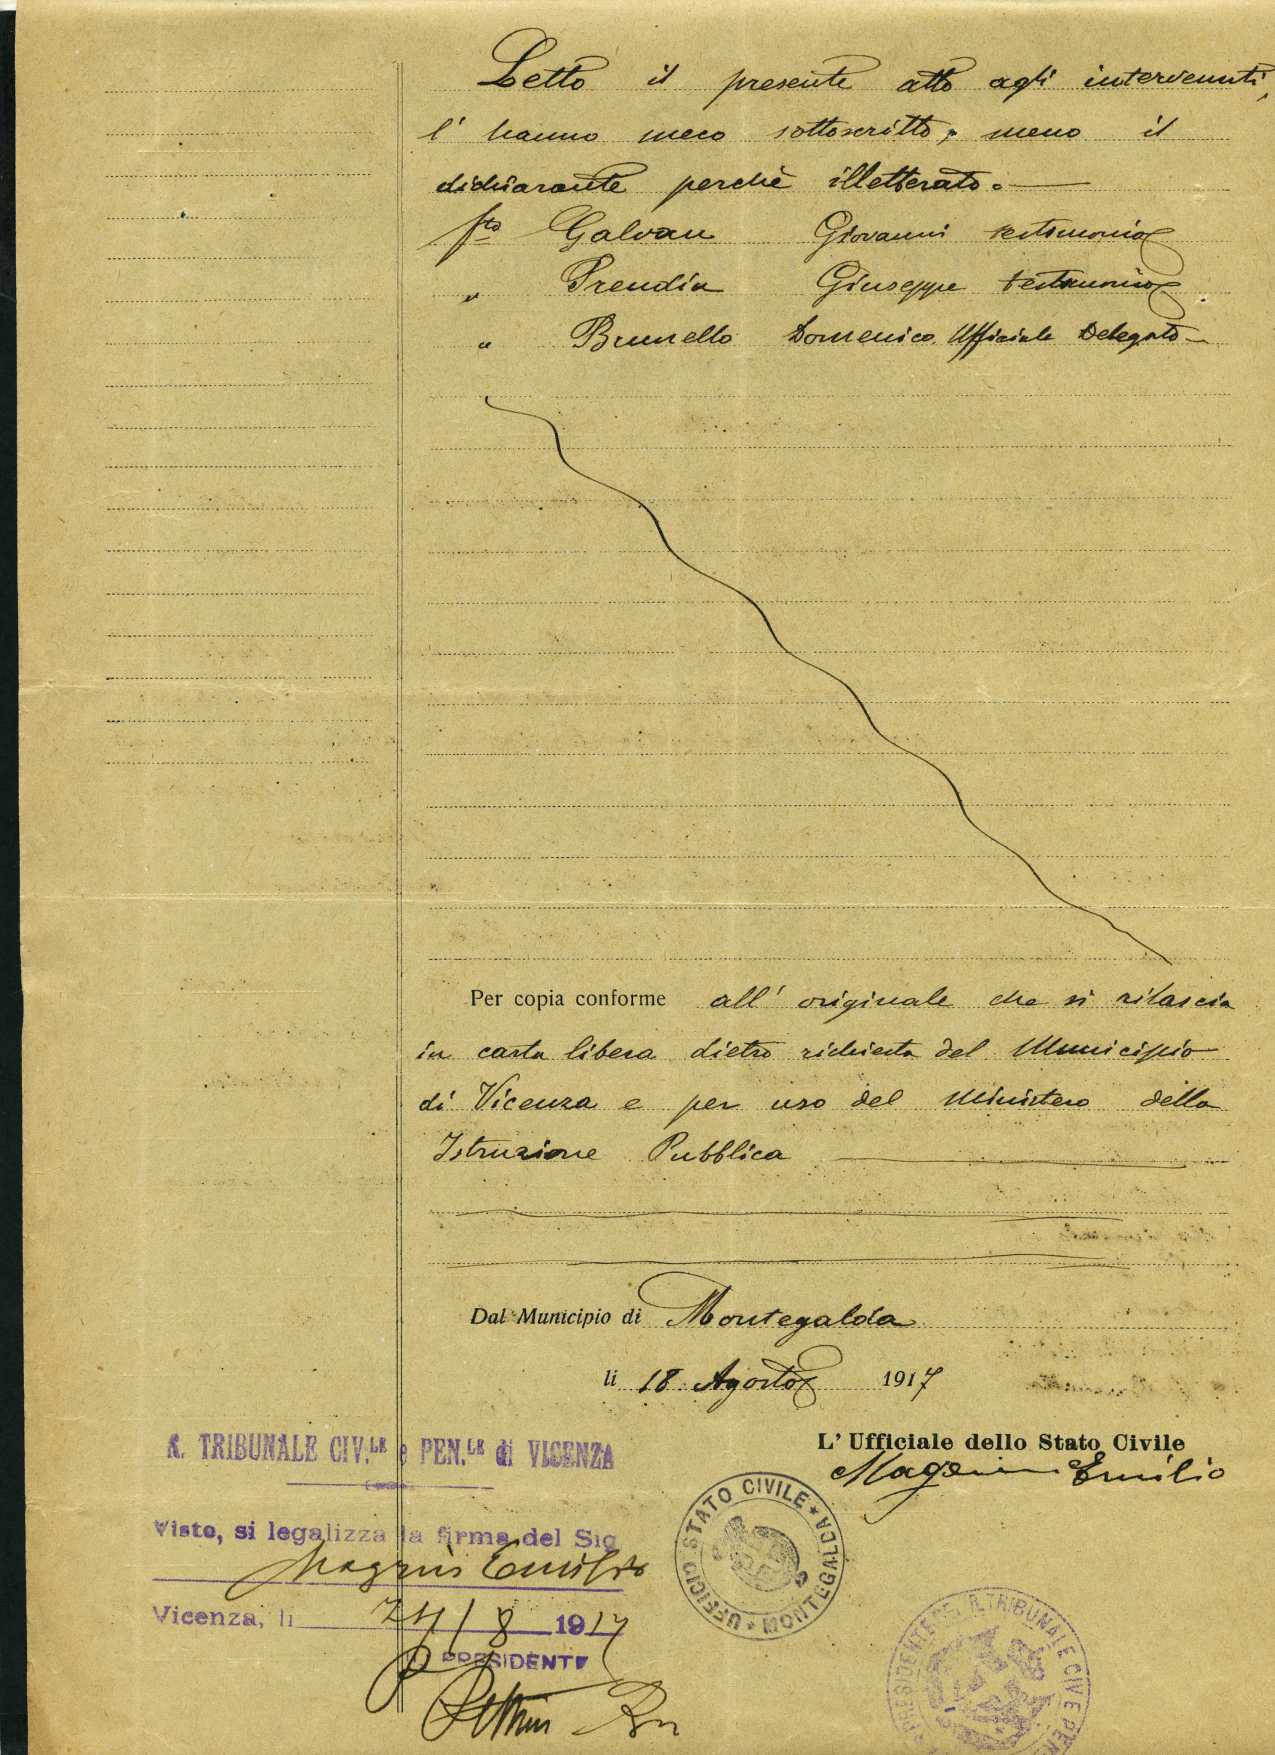 Letto il presente atto agli intervenuti,
l' hanno meco sottoscritto, meno il
dichiarante perchè illetterato.
fto Galvan Giovanni testimonio
" Prendin Giuseppe testimonio
" Brunello Domenico Ufficiale Delegato
Per copia conforme all' originale che si rilascia
in carta libera dietro richiesta del Municipio
di Vicenza e per uso del Ministero della
Istruzione Pubblica
Dal Municipio di Montegalda
li 18 Agosto 1917
L' Ufficiale dello Stato Civile
Emilio
R. TRIBUNALE CIV.LE e PEN.LE di VICENZA
Visto, si legalizza la firma del Sig
Emilio
Vicenza, li 24/8 1917
PRESIDENTE
UFFICIO STATO CIVILE * MONTEGGALDA *
PRESIDENTE DEL R. TRIBUNALE CIV E PEN